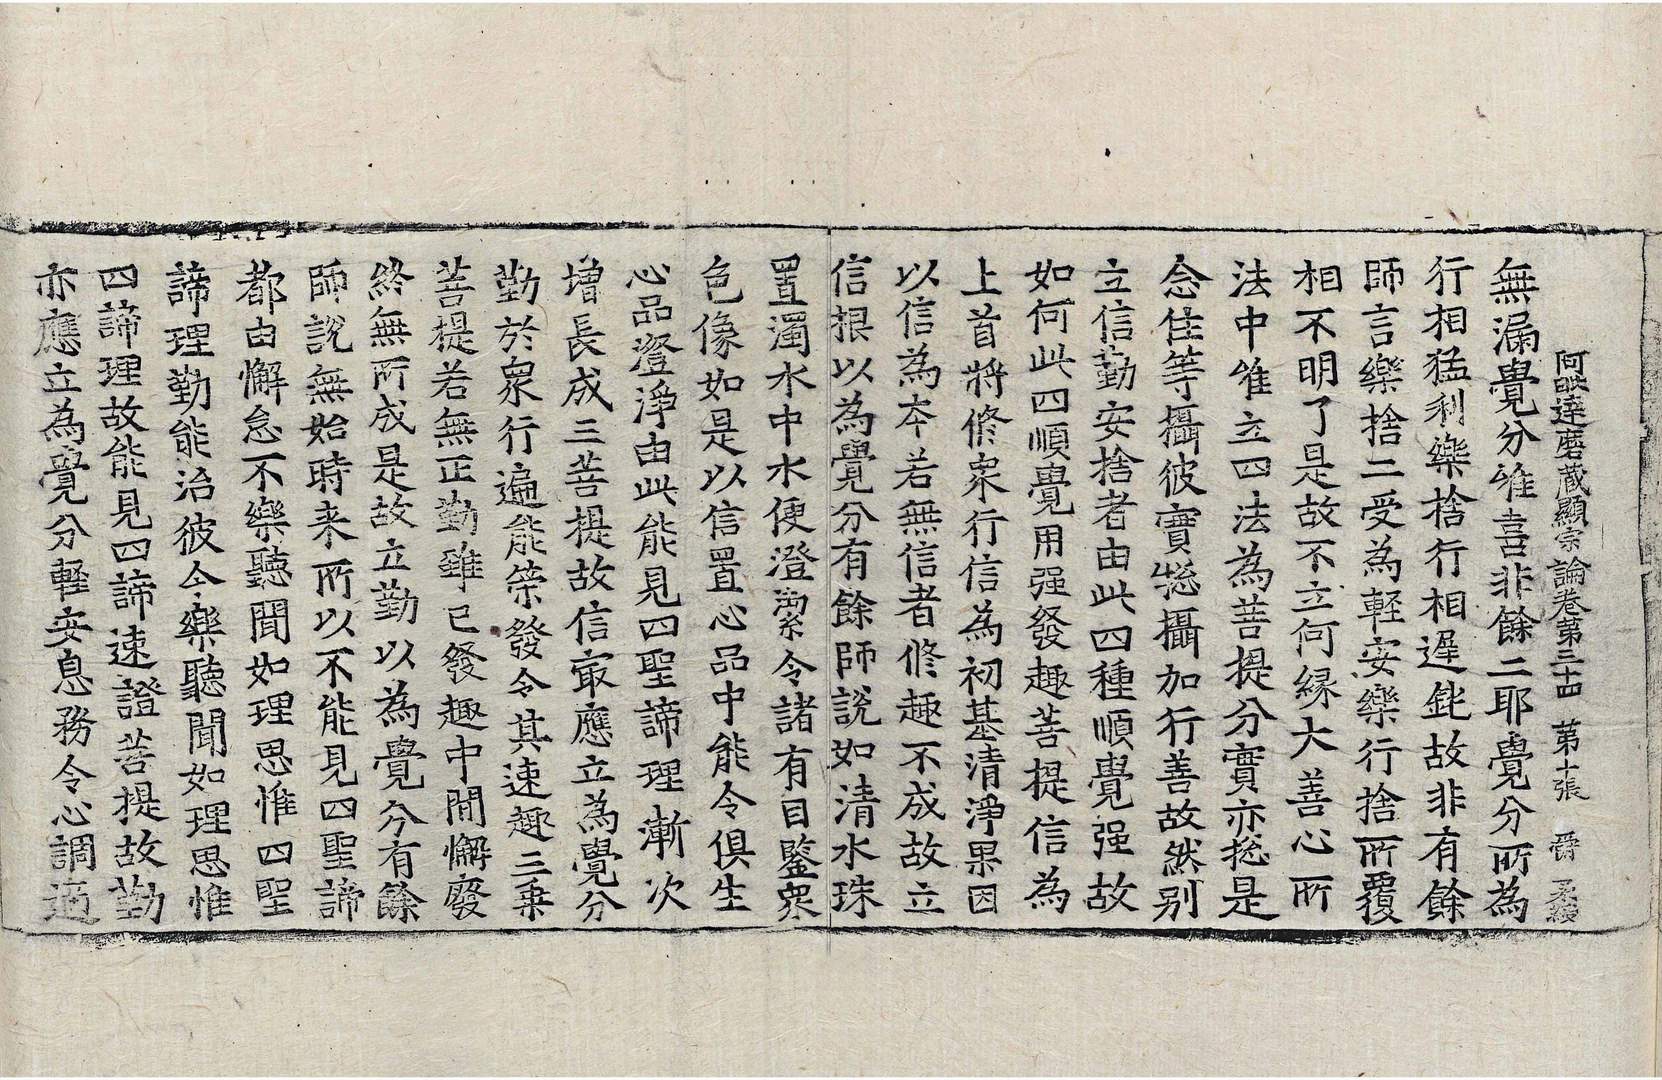 阿毗達磨藏顯宗論卷第三十四　第十張　爵　柔
無漏覺分唯喜非餘二耶覺分所為
行相猛利樂捨行相遲鈍故非有餘
師言樂捨二受為輕安樂行捨所覆
相不明了是故不立何緣大善心所
法中唯立四法為菩提分實亦揔是
念住等攝彼實揔攝加行善故然別
立信勤安捨者由此四種順覺强故
如何此四順覺用强發趣菩提信為
上首將修衆行信為初基清淨果因
以信為夲若無信者修趣不成故立
信根以為覺分有餘師說如清水珠
置濁水中水便澄潔令諸有目鑒衆
色像如是以信置心品中能令俱生
心品澄淨由此能見四聖諦理漸次
增長成三菩提故信㝡應立為覺分
勤於衆行遍能策發令其速趣三乗
菩提若無正勤雖已發趣中間懈廢
終無所成是故立勤以為覺分有餘
師說無始時来所以不能見四聖諦
都由懈怠不樂聽聞如理思惟四聖
諦理勤能治彼令樂聽聞如理思惟
四諦理故能見四諦速證菩提故勤
亦應立為覺分輕安息務令心調適